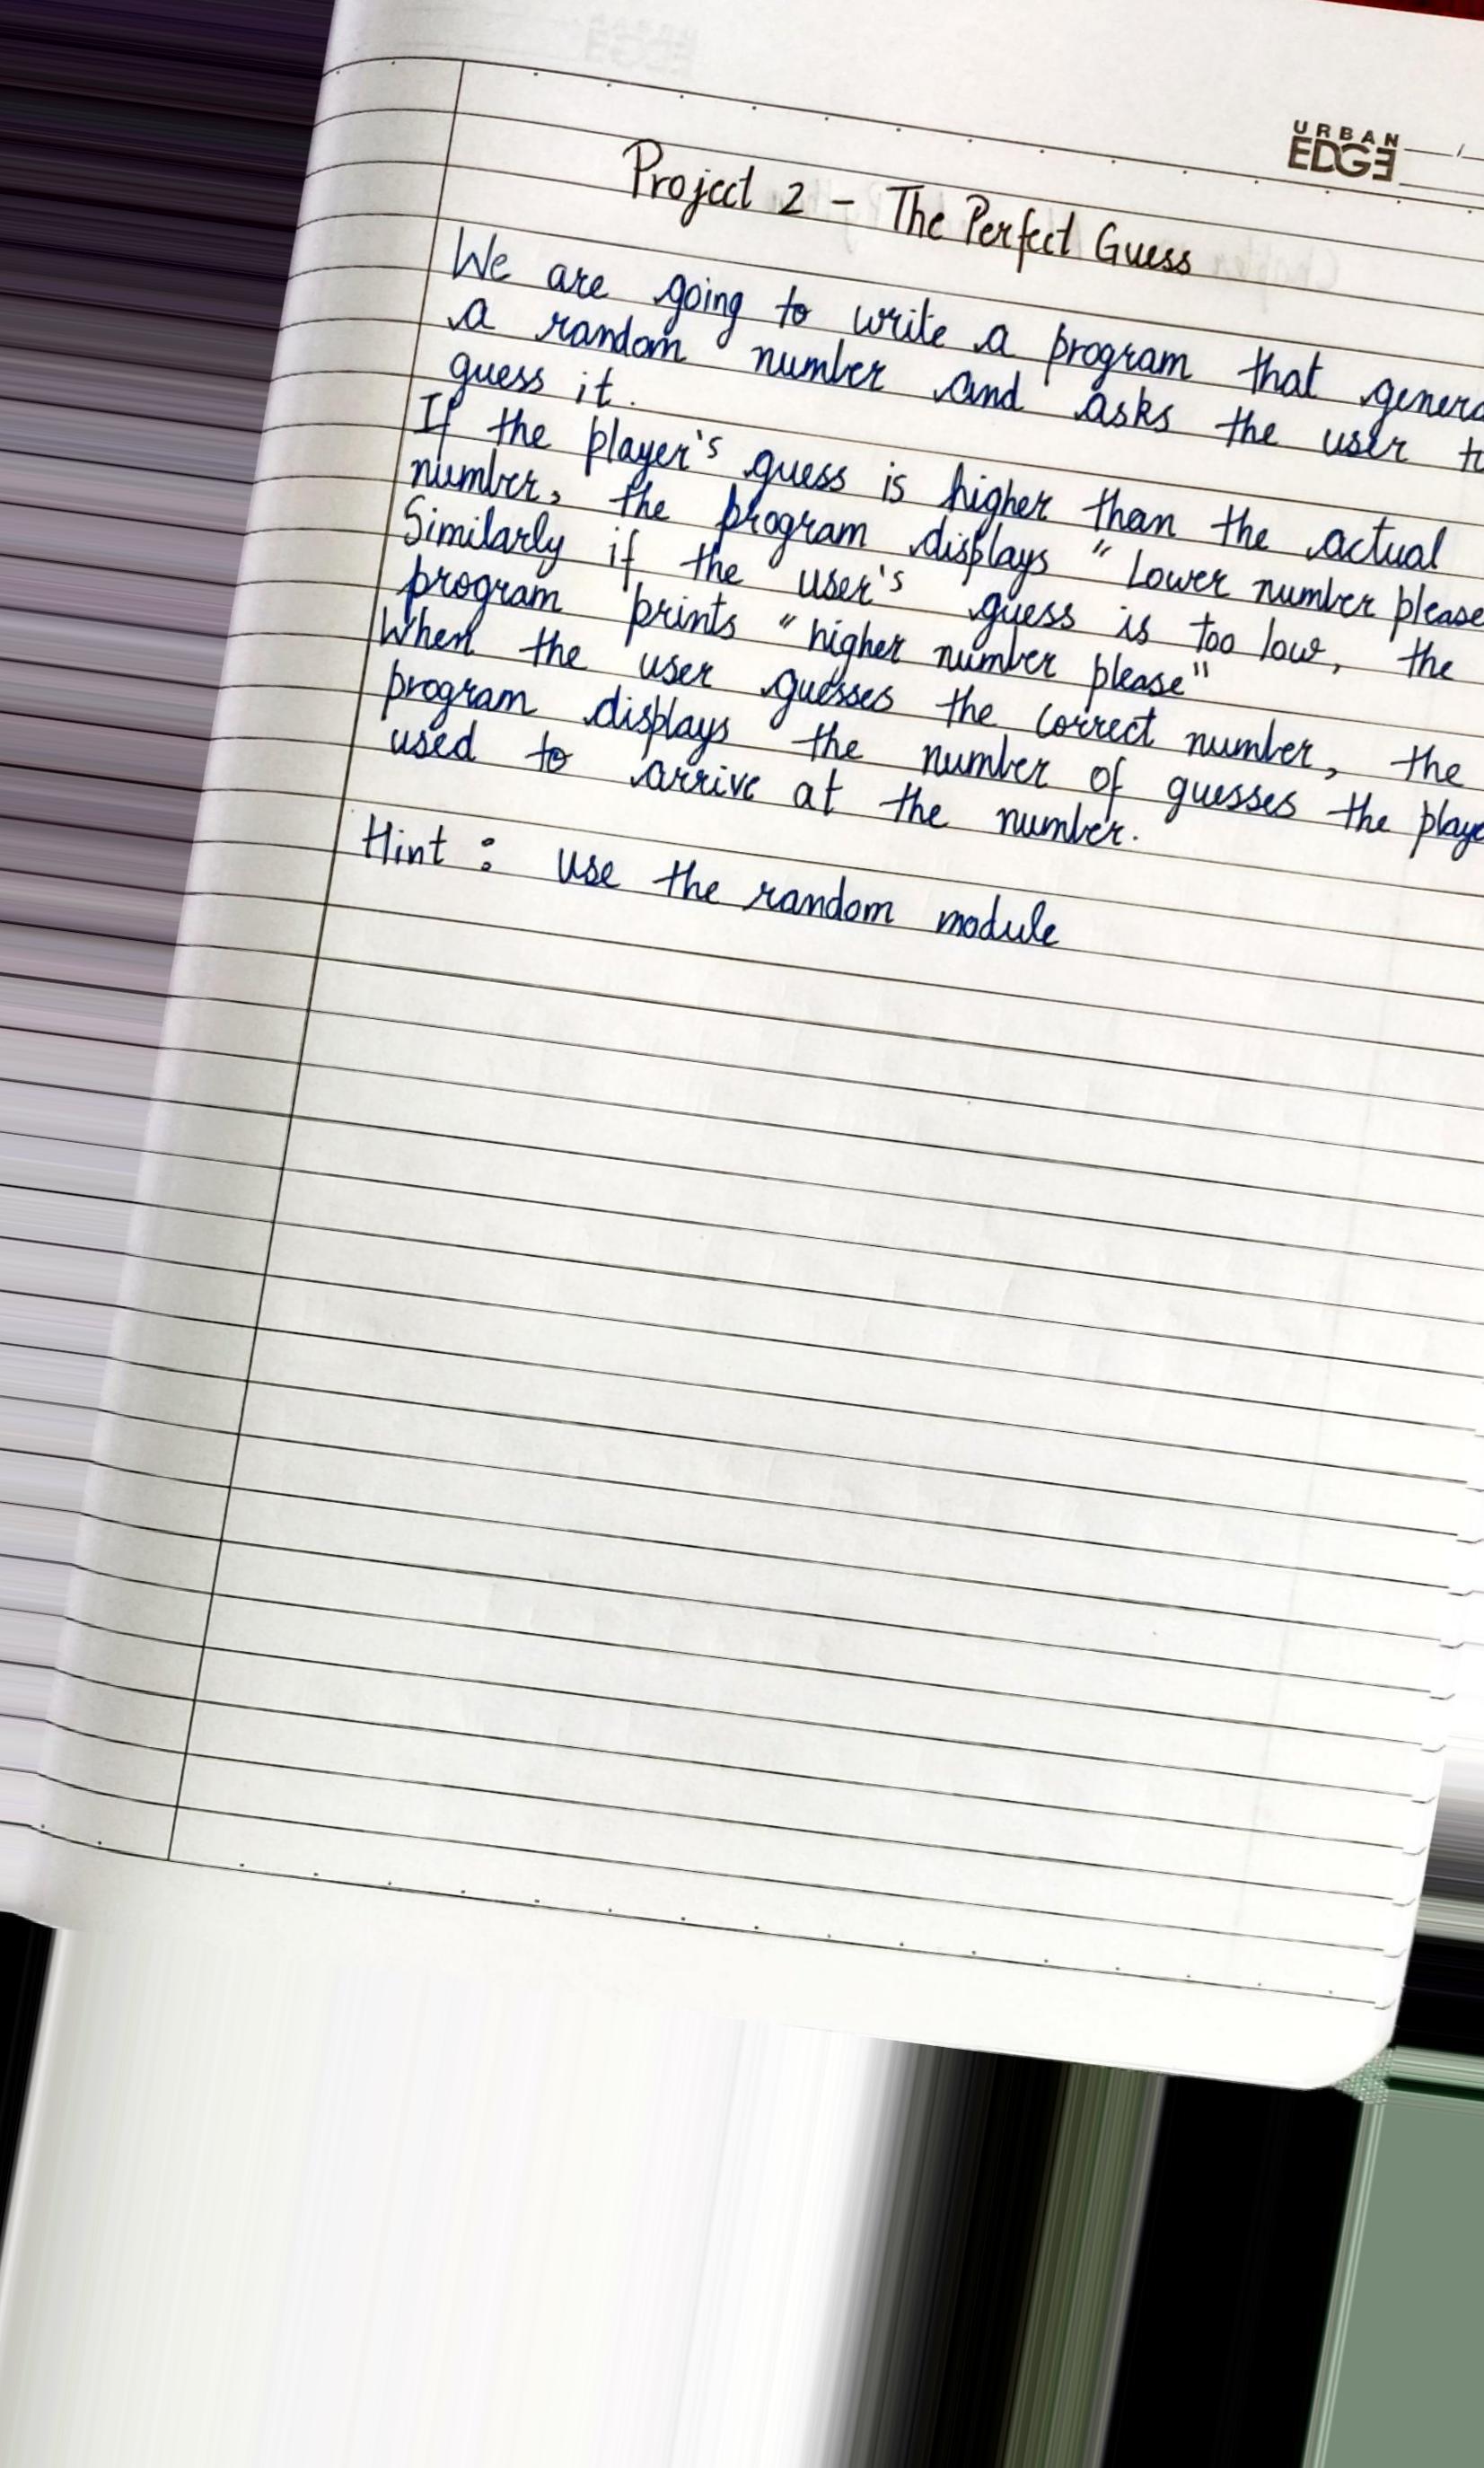 URBAN
EDGE
Project 2 - The Perfect Guess
We are going to write a program that genera
a random number and asks the user to
guess it.
If the player's guess is higher than the actual
number, the program displays "Lower number please
Similarly if the user's guess is too low, the
program prints "higher number please"
When the user guesses the correct number, the
program displays the number of guesses the playe
used to arrive at the number.
Hint : Use the random module